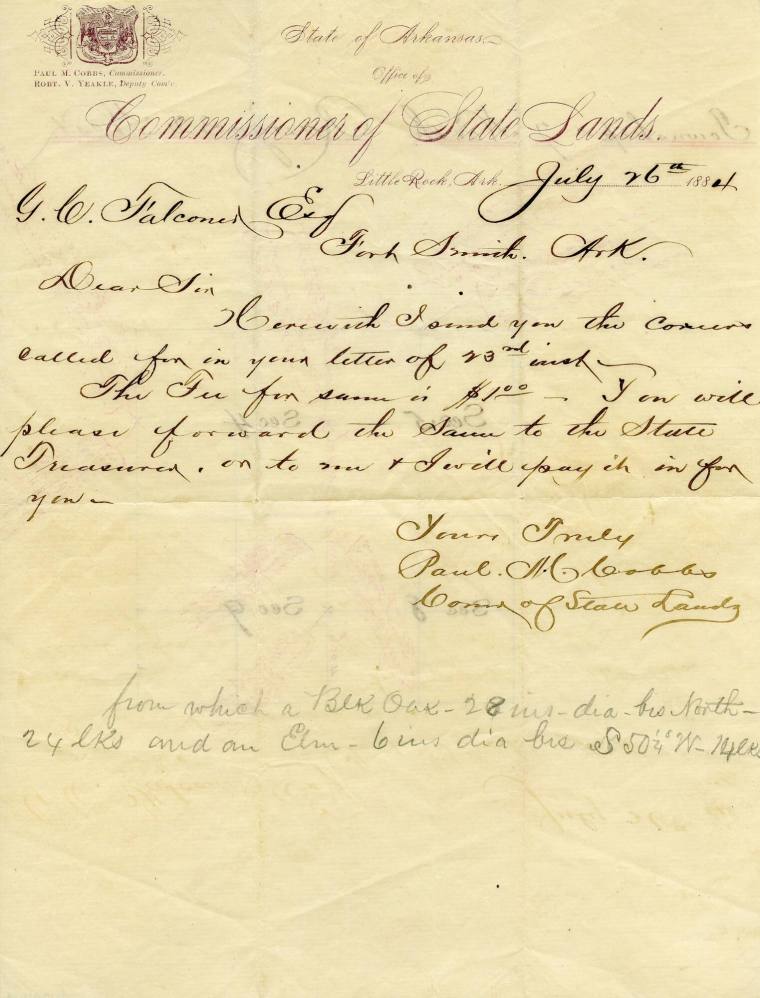 PAUL M. COBBS, Commissioner.
ROBT. V. YEAKLE, Deputy Com'r.
State of Arkansas
Office of
Commissioner of State Lands.
Little Rock, Ark. July 26th 1884
G. C. Falconer Esq
Fort Smith. Ark.
Dear Sir
Herewith I send you the corners
called for in your letter of 23rd inst
The Fee for same is $1.00 - You will
please forward the same to the State
Treasurer. or to me & I will pay it in for
you
Yours Truly
Paul. M. Cobbs
Comr of State Lands
from which a Blk Oak - 28 ins - dia - brs North -
24 lks and an Elm - 6 ins dia brs S 50¼° W - 14 lks
Sec 4
Sec 9